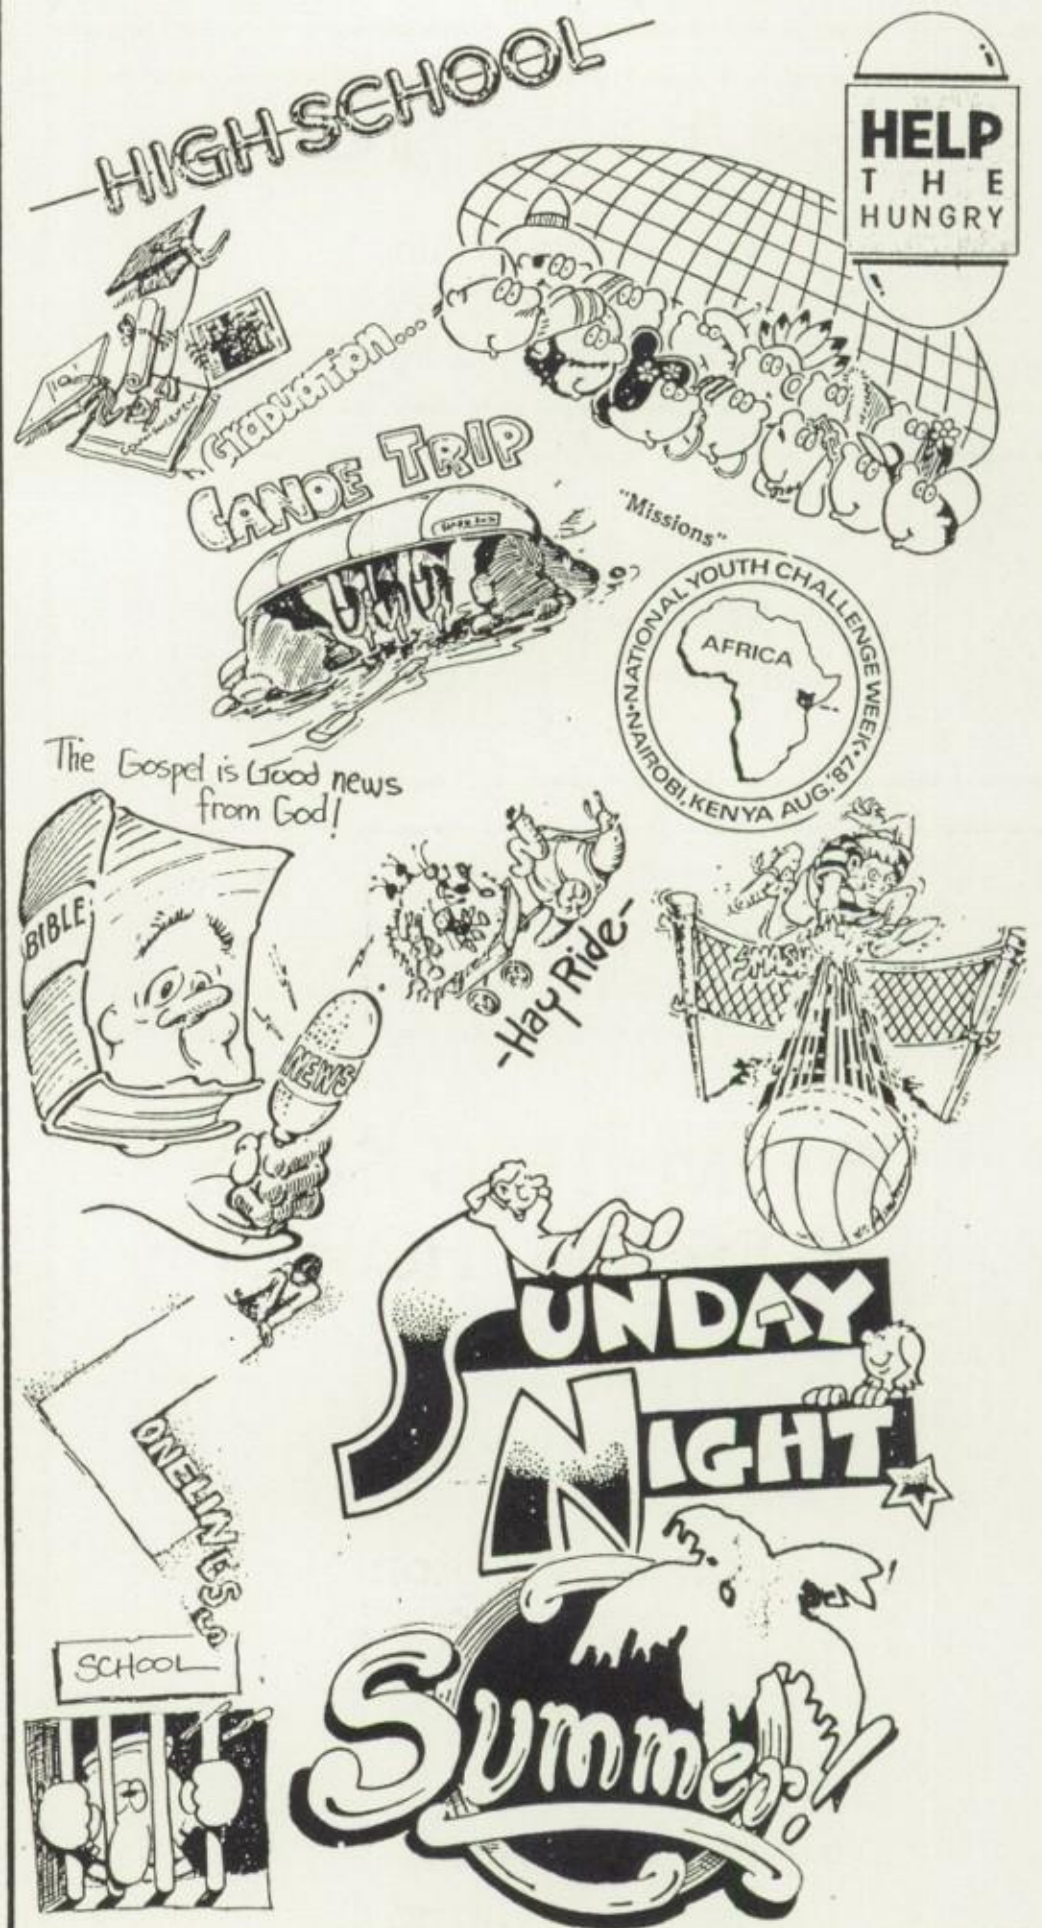 HIGH SCHOOL
HELP
THE
HUNGRY
GRADUATION...
CANOE TRIP
"Missions"
•NATIONAL YOUTH CHALLENGE WEEK•
NAIROBI, KENYA AUG. '87
AFRICA
The Gospel is Good news
from God!
BIBLE
NEWS
-Hay Ride-
SMASH
SUNDAY
NIGHT
LONELINESS
SCHOOL
Summer!